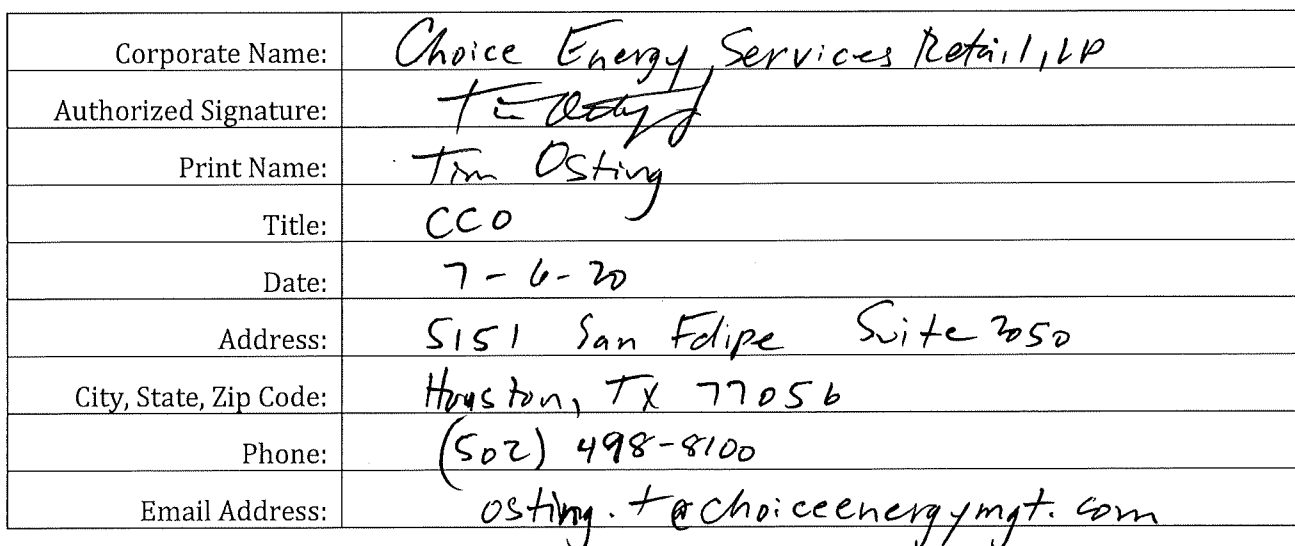 Corporate Name: Choice Energy Services Retail, LP
Authorized Signature: Tim Osting
Print Name: Tim Osting
Title: CCO
Date: 7-6-20
Address: 5151 San Felipe Suite 2050
City, State, Zip Code: Houston, TX 77056
Phone: (502) 498-8100
Email Address: osting.t@choiceenergymgt.com